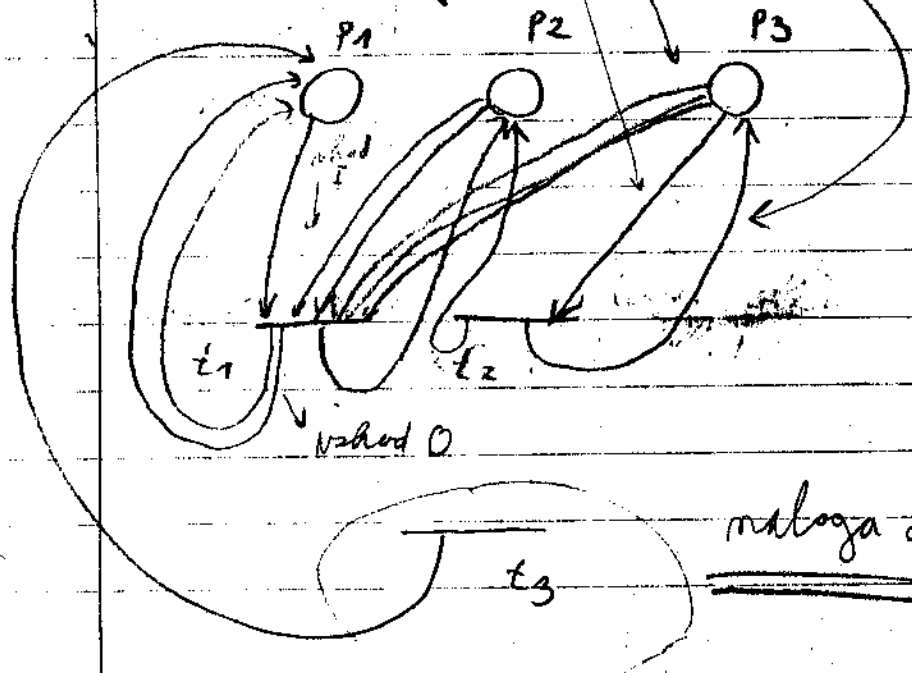 P1 P2 P3
vhod
I
t1 t2
vshod O
t3
naloga